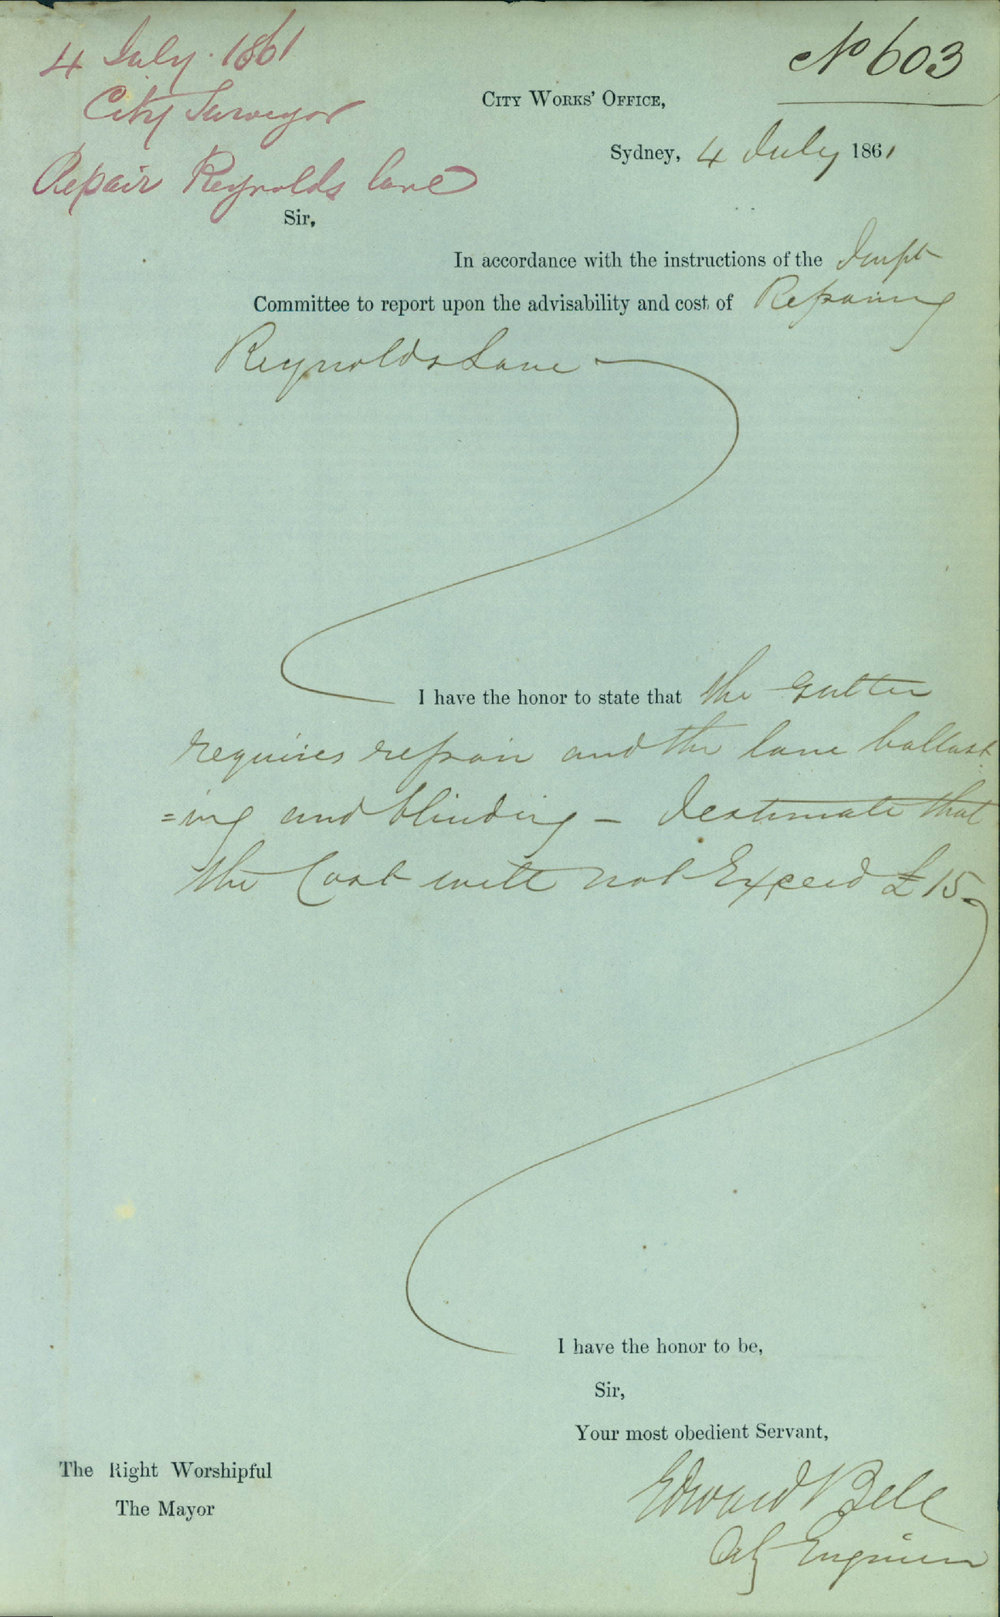 4 July. 1861
City Surveyor
Repair Reynolds lane
No 603
City Works' Office,
Sydney, 4 July 1861
Sir,
In accordance with the instructions of the Impt
Committee to report upon the advisability and cost of Repairing
Reynolds Lane —
I have the honor to state that the gutter
requires repair and the lane ballast
=ing and blinding – I estimate that
the Cost will not Exceed £15
I have the honor to be,
Sir,
Your most obedient Servant,
The Right Worshipful
The Mayor
Edward Bell
City Engineer